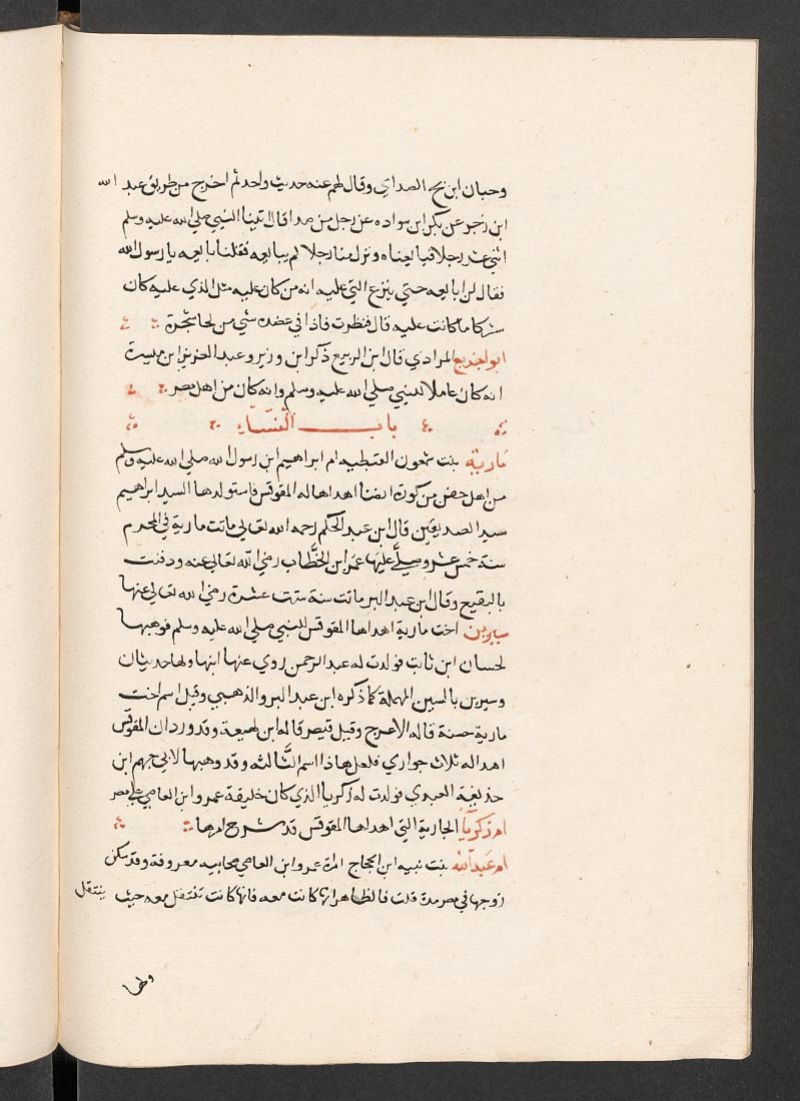 وحبان ابن بح الصداي وقال لهم عنه حديث واحد ثم اخرج من طريق عبد الله
ابن زحر عن بكر ابن سواده عن رجل من صدا قال اتينا النبي صلي الله عليه وسلم
اثني عشر رجلا فبايعناه ونزل منا رجلا لم يبايعه فقلنا بايعه يا رسول الله
فقال لن ابايعه حتي ينزع التي عليه انه من كان عليه مثل الذي عليه كان
مشركا ما كانت عليه قال فنظرت فاذا في عضده شي من لحا شجرة
ابو اخريع المرادي قال ابن الربيع ذكر ابن وزير وعبد العزيز ابن ميسرة
انه كان عاملا للنبي صلي الله عليه وسلم وانه كان من اهل مصر
باب النساء
مارية بنت شمعون القبطيه ام ابراهيم ابن رسول الله صلي الله عليه وسلم
من اهل حفن من كورة انصنا اهداها له المقوقس فاستولدها السيد ابراهيم
سيد الصديقين قال ابن عبد الحكم رحمه الله تعالي ماتت مارية في المحرم
سنة خمس عشر وصلي عليها عمر ابن الخطاب رضي الله تعالي عنه ودفنت
بالبقيع وقال ابن عبد البر ماتت سنة ستت عشرة رضي الله تعالي عنها
سيرين اخت مارية اهداها المقوقس للنبي صلي الله عليه وسلم فوهبها
لحسان ابن ثابت فولدت له عبد الرحمن روي عنها ابنها ولها حديثان
وسيرين بالسين المهملة كما ذكره ابن عبد البر والذهبي وقيل اسم اخت
مارية حسنة قاله الاعرج وقيل قيصر قاله ابن لهيعة وقد ورد ان المقوقس
اهدا له ثلاث جواري فلعل هاذا اسم الثالثه وقد وهبها لابي جهم ابن
حذيفة العبدي فولدت له زكريا الذي كان خليفة عمرو ابن العاصي علي مصر
ام زكريا الجارية التي اهداها المقوقس قد شرح امرها
ام عبد الله بنت نبيه ابن الحجاج امراة عمرو ابن العاصي صحابيه معروفة وقد سكن
زوجها في مصر مدة قلت فالظاهر انها كانت معه فانها كانت تنتقل معه حيث ينتقل